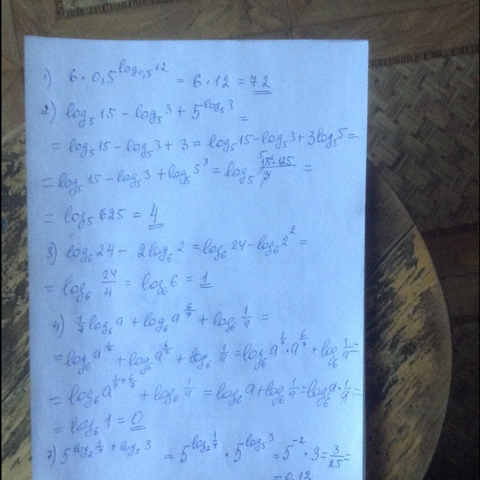 1) 6 · 0,5^{log_{0,5} 12} = 6 · 12 = 72
2) log_5 15 − log_5 3 + 5^{log_5 3} =
= log_5 15 − log_5 3 + 3 = log_5 15 − log_5 3 + 3log_5 5 =
= log_5 15 − log_5 3 + log_5 5^3 = log_5 \frac{15·125}{3} =
= log_5 625 = 4
3) log_6 24 − 2log_6 2 = log_6 24 − log_6 2^2 =
= log_6 \frac{24}{4} = log_6 6 = 1
4) \frac{1}{7} log_6 a + log_6 a^{\frac{6}{7}} + log_6 \frac{1}{a} =
= log_6 a^{\frac{1}{7}} + log_6 a^{\frac{6}{7}} + log_6 \frac{1}{a} = log_6 a^{\frac{1}{7}} · a^{\frac{6}{7}} + log_6 \frac{1}{a} =
= log_6 a^{\frac{1}{7}+\frac{6}{7}} + log_6 \frac{1}{a} = log_6 a + log_6 \frac{1}{a} = log_6 a · \frac{1}{a} =
= log_6 1 = 0
7) = 5^{-2} · 3 = \frac{3}{25} =
= 0,12